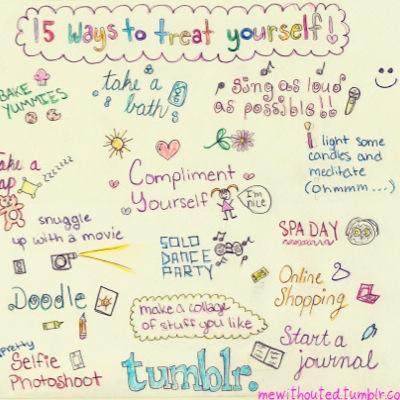 15 Ways to treat yourself!
BAKE
YUMMIES
take a
bath
Sing as loud
as possible!!
light some
candles and
meditate
(ohmmm...)
Take a
nap
Compliment
Yourself
I'm
nice
snuggle
up with a movie
SOLO
DANCE
PARTY
SPA DAY
Online
Shopping
Doodle
make a collage
of stuff you like
Start a
journal
Pretty
Selfie
Photoshoot
tumblr.
mewithouted.tumblr.co